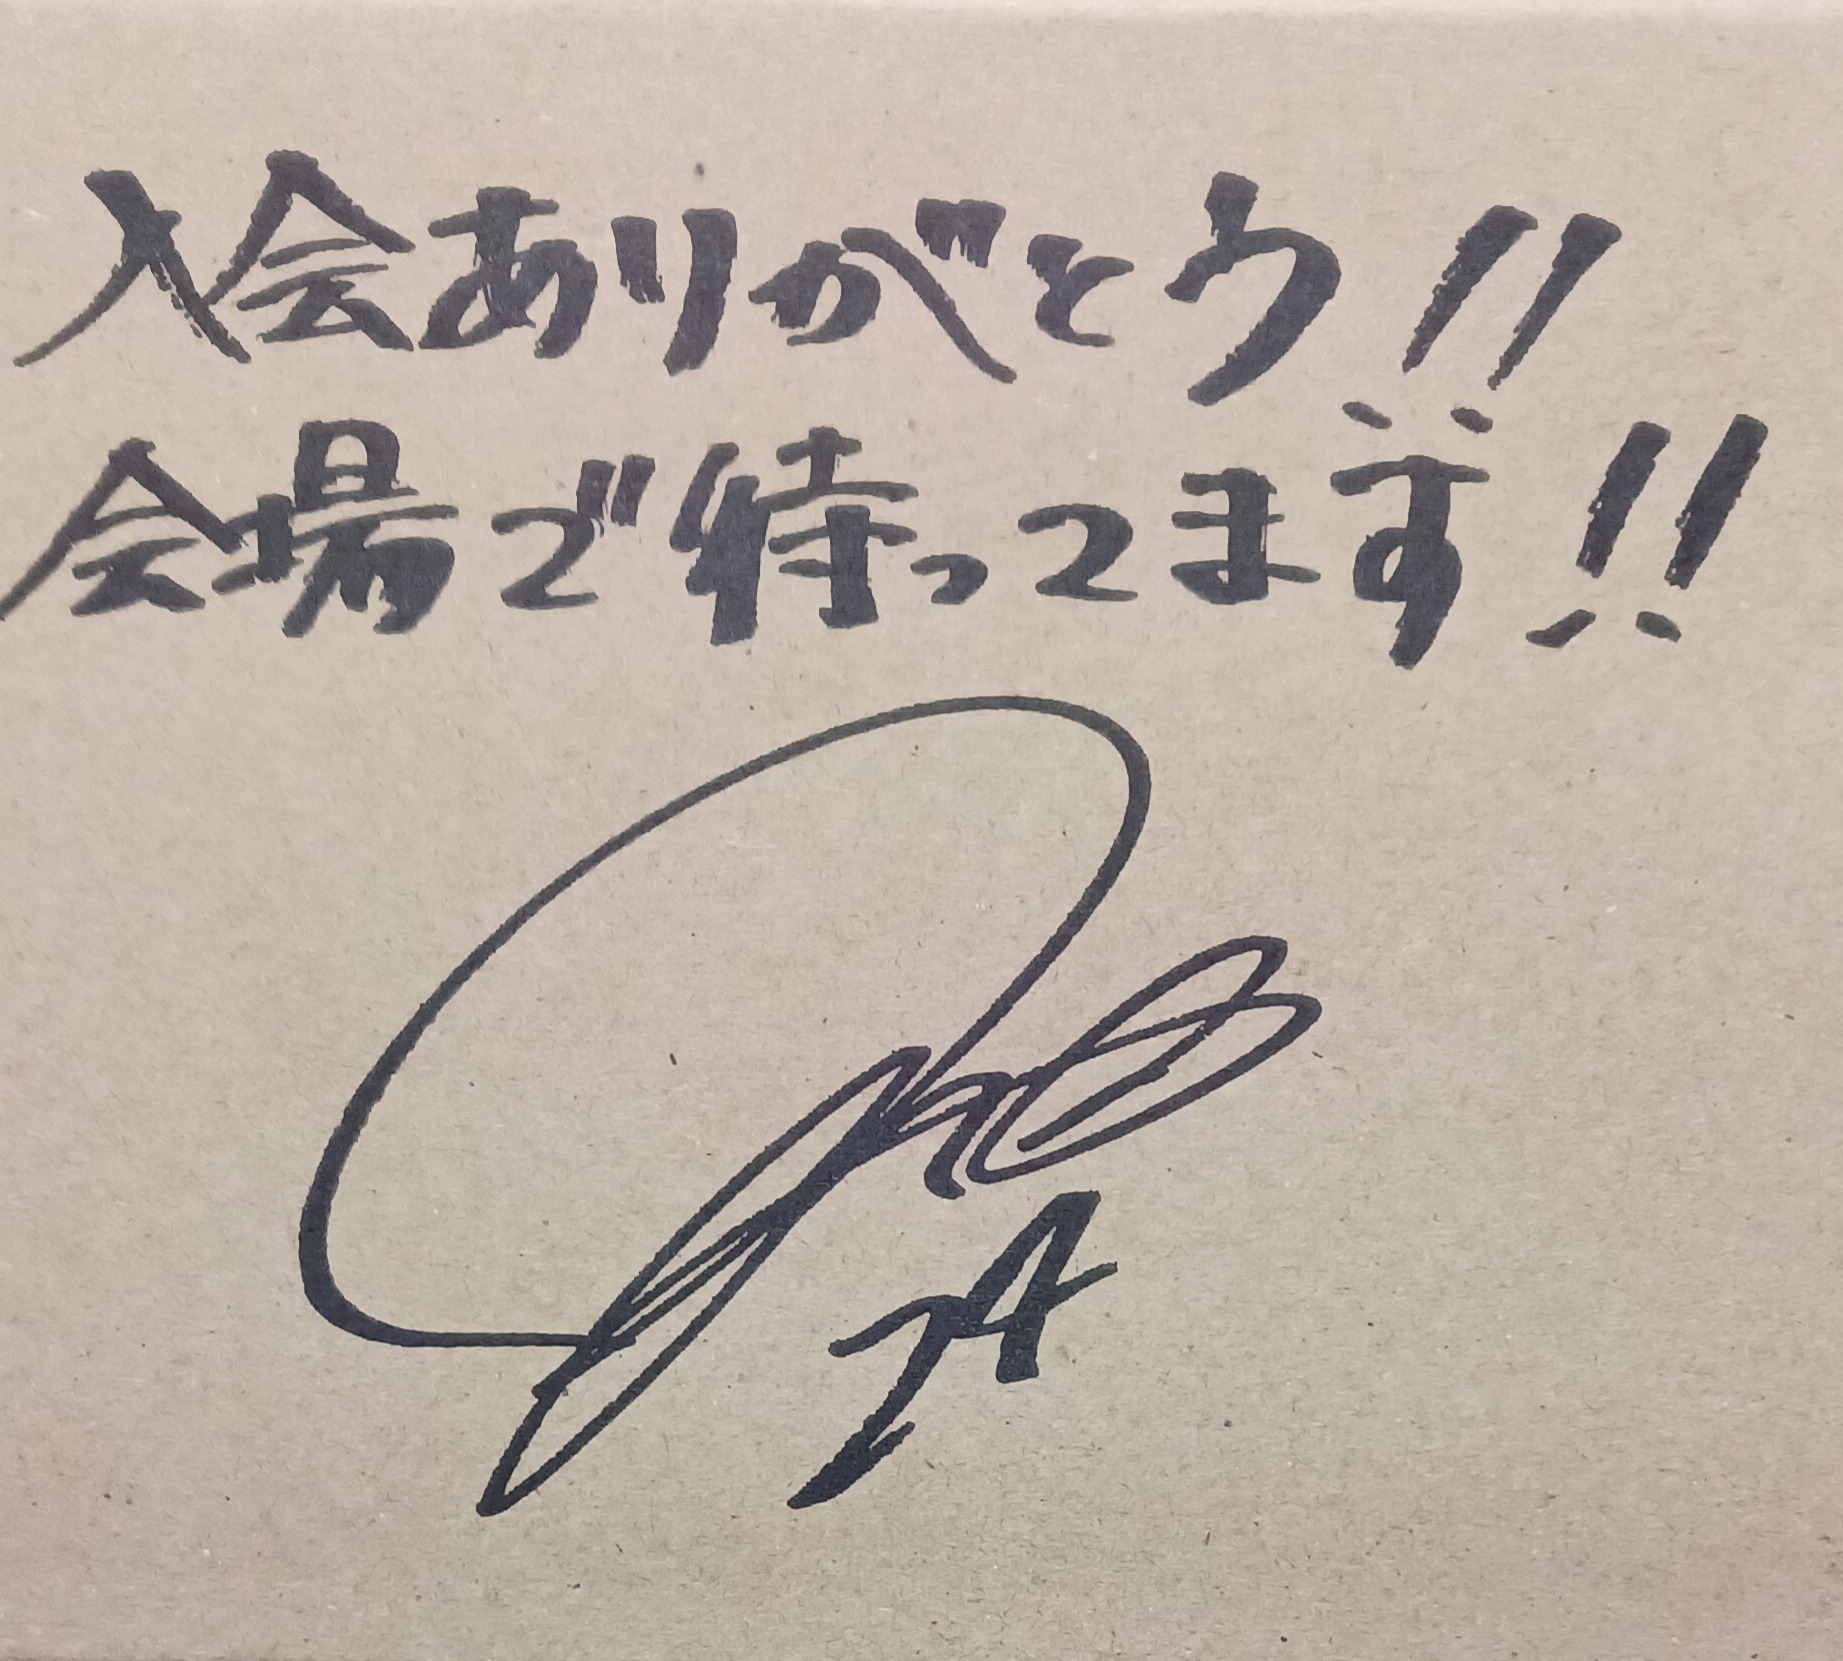 入会ありがとう!!
会場で待ってます!!
74